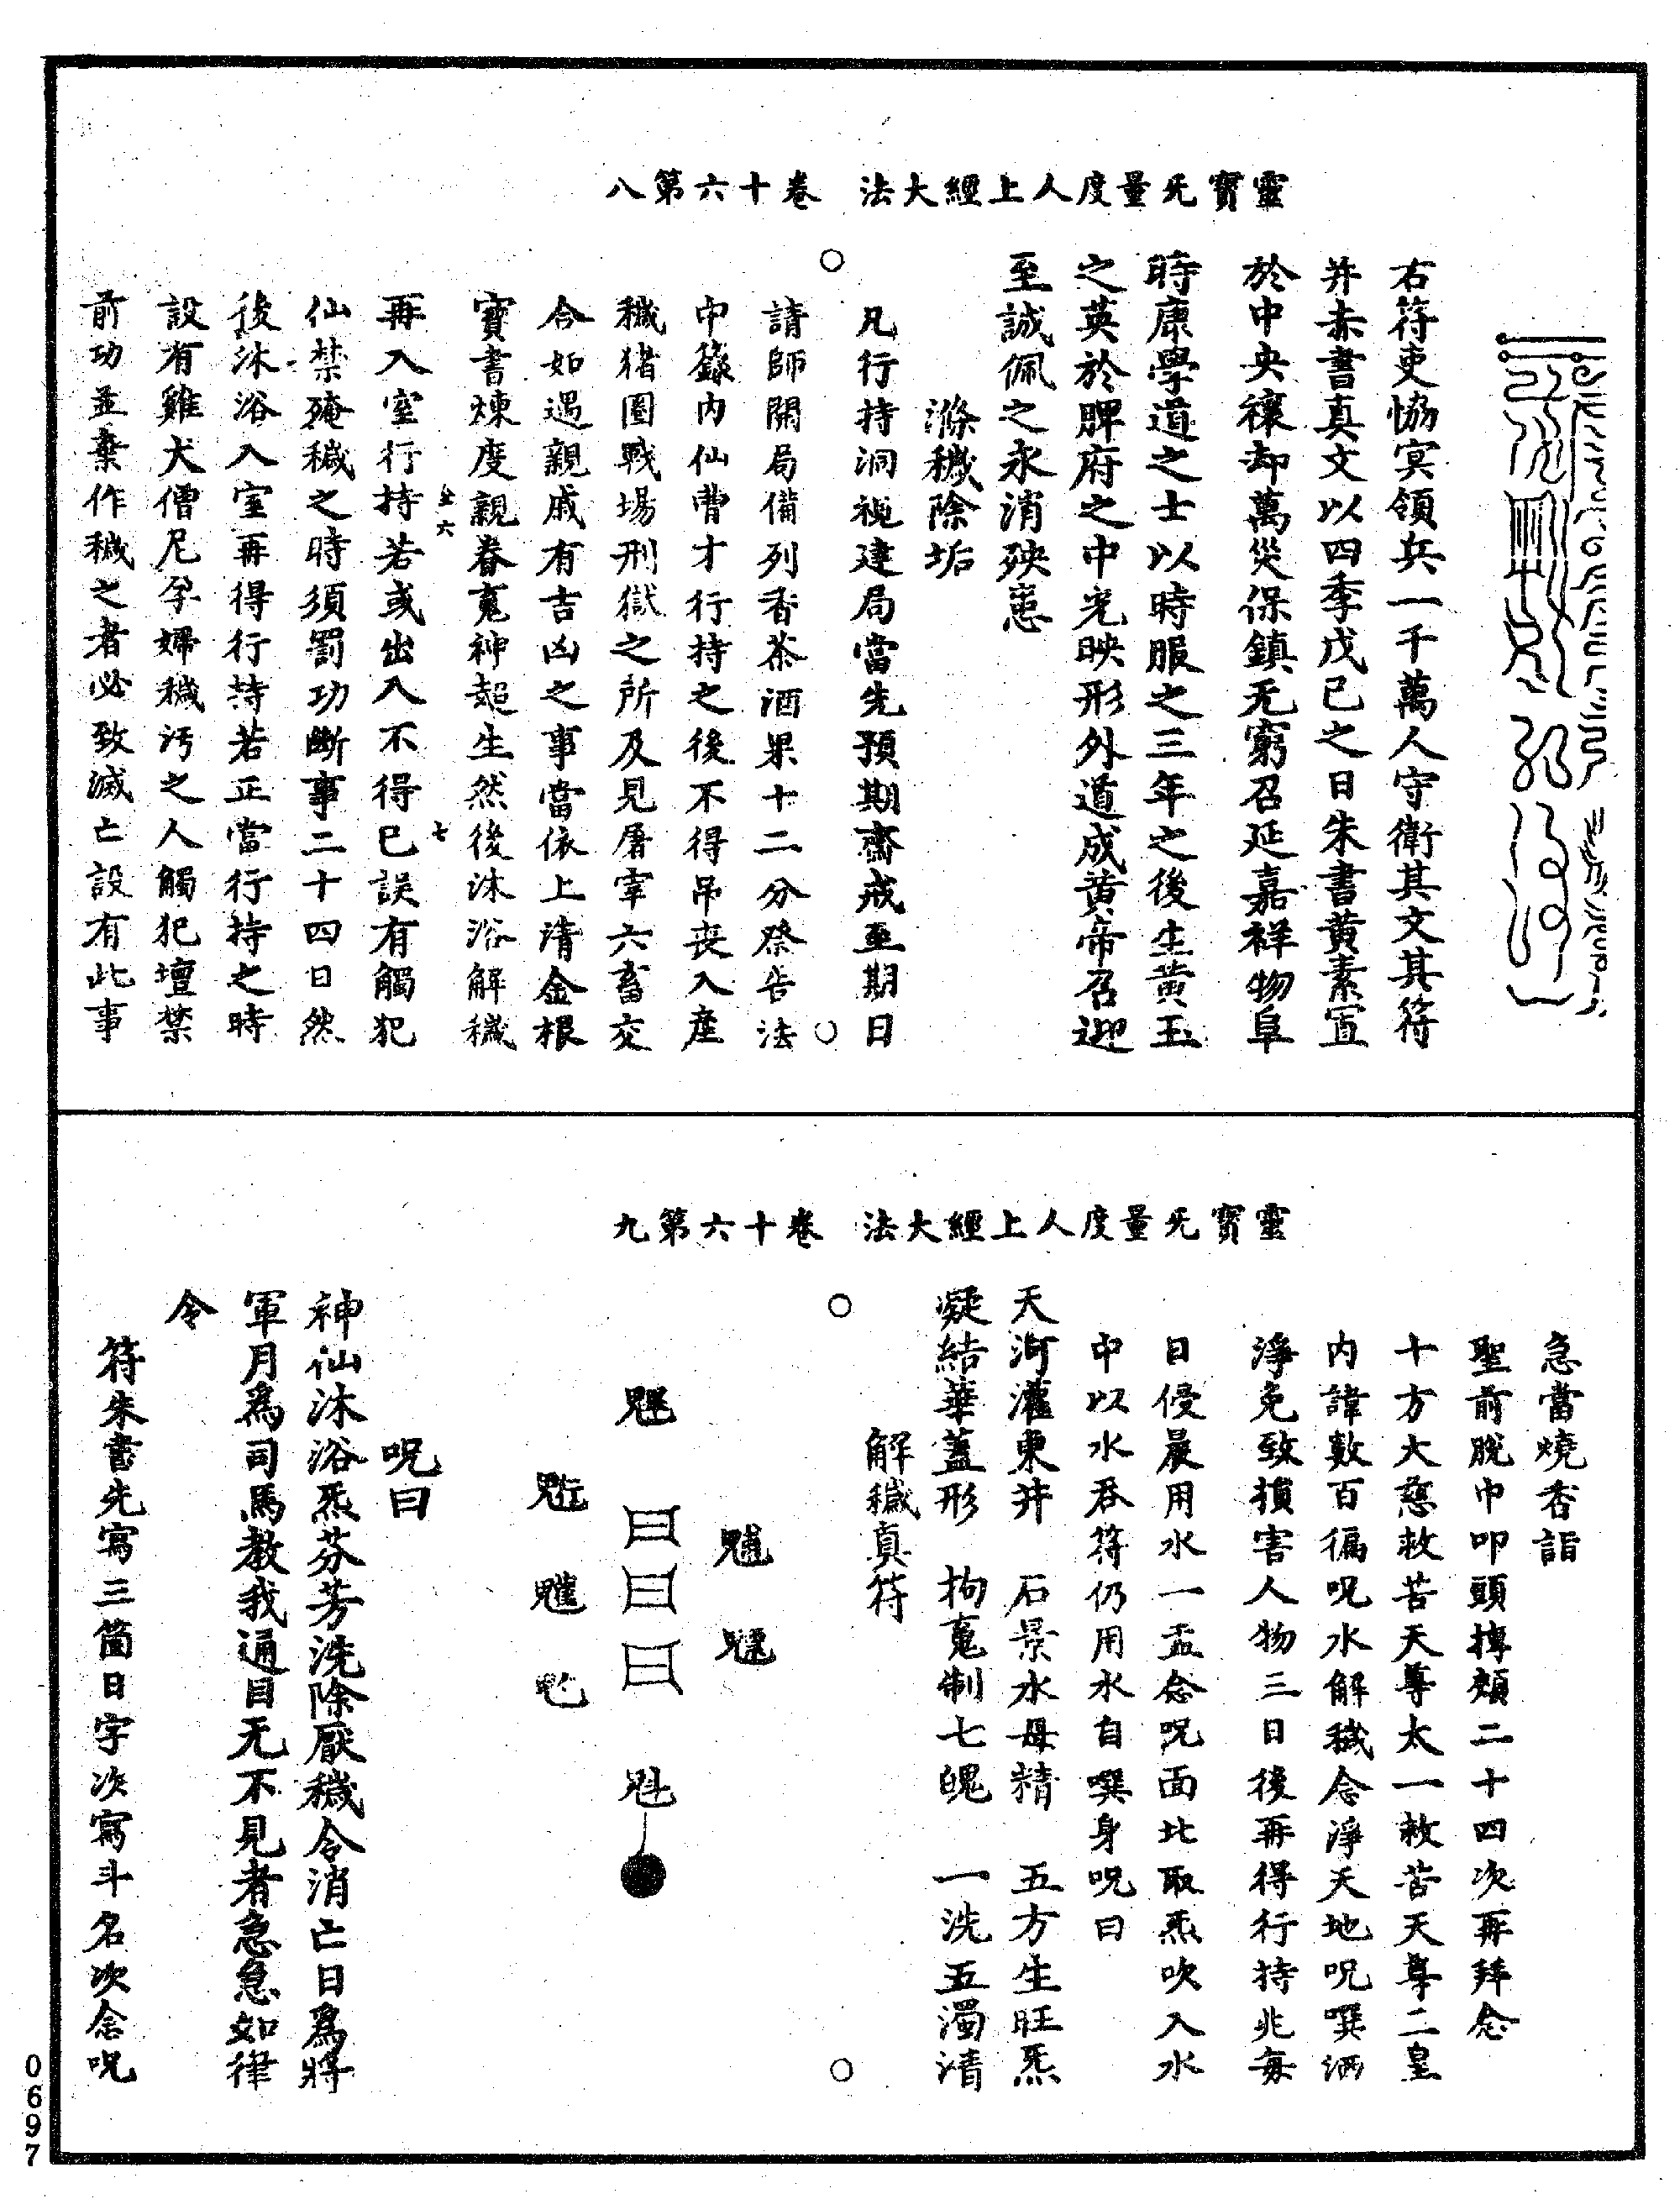 靈寶无量度人上經大法　卷十六第八
右符吏恊㝠領兵一千萬人守衛其文其符
并赤書真文以四季戊己之日朱書黄素置
於中央禳却萬災保鎮无窮召延嘉祥物阜
時康學道之士以時服之三年之後生黄玉
之英於脾府之中光映形外道成黄帝召迎
至誠佩之永消殃恚
滌穢除垢
凡行持洞視建局當先預期齋戒至期日
請師開局備列香茶酒果十二分祭告法
中籙内仙曹才行持之後不得吊喪入産
穢猪圈戰場刑獄之所及見屠宰六畜交
合如遇親戚有吉凶之事當依上清金根
寶書煉度親眷䰟神超生然後沐浴解穢
再入室行持若或出入不得已誤有觸犯
仙禁殗穢之時須罰功斷事二十四日然
後沐浴入室再得行持若正當行持之時
設有雞犬僧尼孕婦穢汚之人觸犯壇禁
前功並棄作穢之者必致滅亡設有此事
靈寶无量度人上經大法　卷十六第九
急當燒香詣
聖前脫巾叩頭摶頰二十四次再拜念
十方大慈救苦天尊太一救苦天尊二皇
内諱數百徧呪水解穢念淨天地呪噀洒
淨免致損害人物三日後再得行持兆每
日侵晨用水一盂念呪面北取炁吹入水
中以水吞符仍用水自噀身呪曰
天河灌東井　石景水母精　五方生旺炁
凝結華蓋形　拘䰟制七魄　一洗五濁清
解穢真符
魁
曰曰曰
呪曰
神仙沐浴炁芬芳洗除厭穢令消亡日爲將
軍月爲司馬教我通目无不見者急急如律
令
符朱書先寫三箇日字次寫斗名次念呪
0697